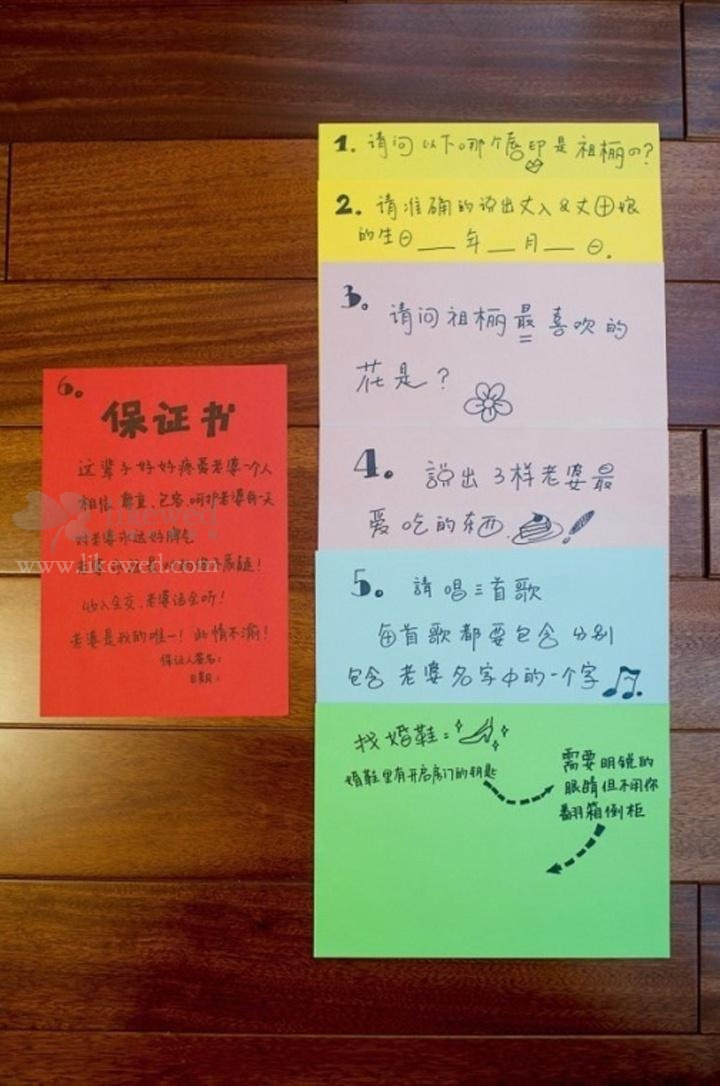 1. 请问以下哪个唇印是祖栖の?
2. 请准确的说出丈人&丈田娘
的生日___年___月___日.
3. 请问祖栖最喜欢的
花是?
4. 說出3样老婆最
爱吃的东西
5. 請唱三首歌
每首歌都要包含分别
包含老婆名字中的一个字
找婚鞋:
婚鞋里有开启房门的钥匙
需要明镜的
眼睛但不用你
翻箱倒柜
6.
保证书
这辈子好好疼爱老婆一个人
相信、尊重、包容、呵护老婆每一天
对老婆永远好脾气
收入全交、老婆话全听!
老婆是我的唯一!此情不渝!
保证人签名:
日期:
likewed
www.likewed.com